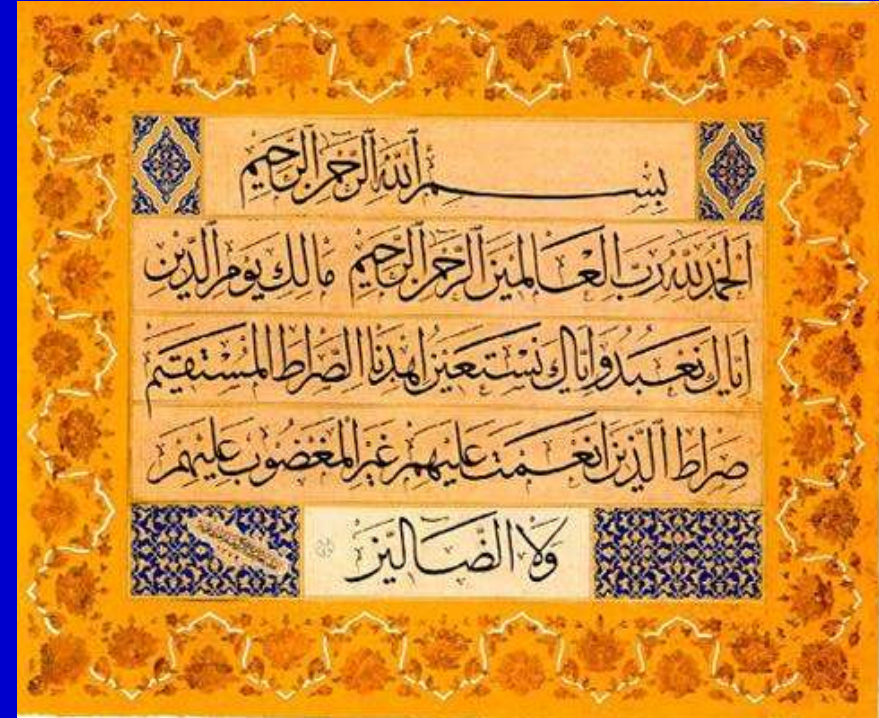 بِسْمِ ٱللّٰهِ ٱلرَّحْمٰنِ ٱلرَّحِيْمِ
اَلْحَمْدُ لِلّٰهِ رَبِّ الْعَالَمِيْنَ ٱلرَّحْمٰنِ ٱلرَّحِيْمِ مٰالِكِ يَوْمِ الدِّيْنِ
اِيَّاكَ نَعْبُدُ وَاِيَّاكَ نَسْتَعِيْنُ اِهْدِنَا الصِّرٰاطَ الْمُسْتَقِيْمَ
صِرٰاطَ الَّذِيْنَ اَنْعَمْتَ عَلَيْهِمْ غَيْرِ الْمَغْضُوْبِ عَلَيْهِمْ
وَلَا الضَّالِّيْنَ